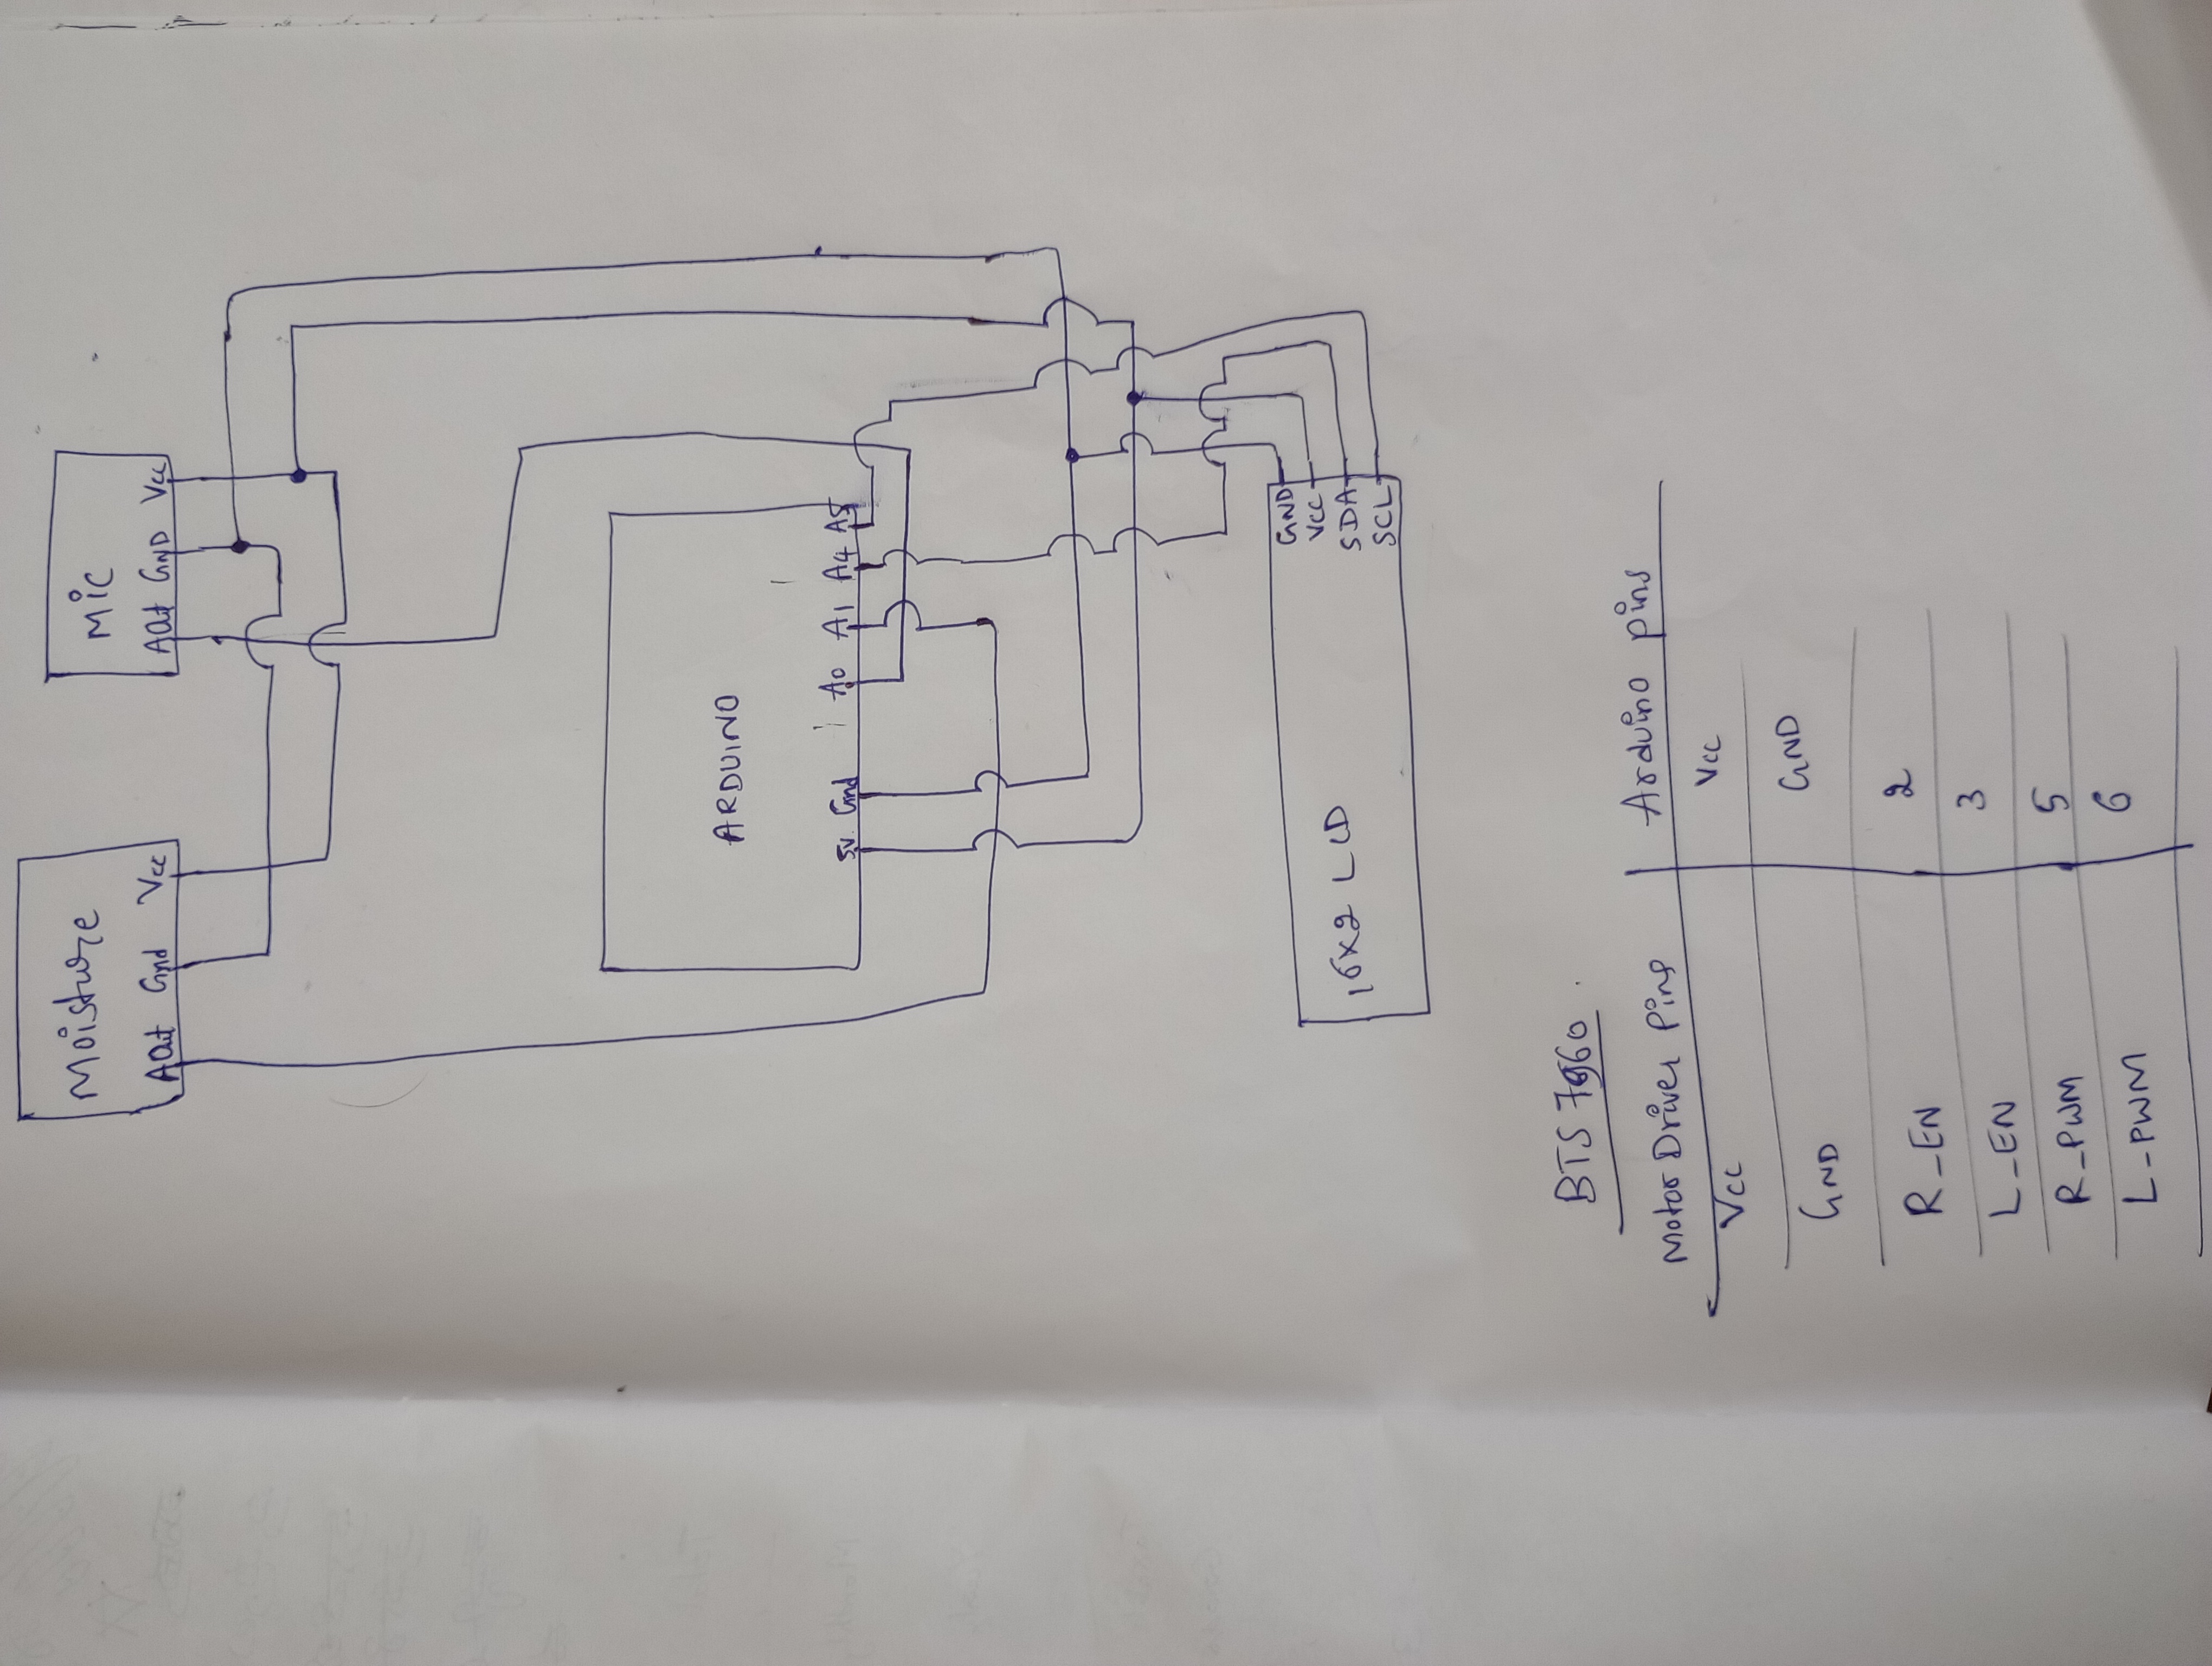 Moisture
AOut Gnd Vcc
MiC
AOut GND Vcc
ARDUINO
5v Gnd A0 A1 A4 A5
16x2 LCD
GND
VCC
SDA
SCL
BTS 7960
Motor Driver Pins Arduino pins
Vcc Vcc
GND GND
R_EN 2
L_EN 3
R_PWM 5
L_PWM 6